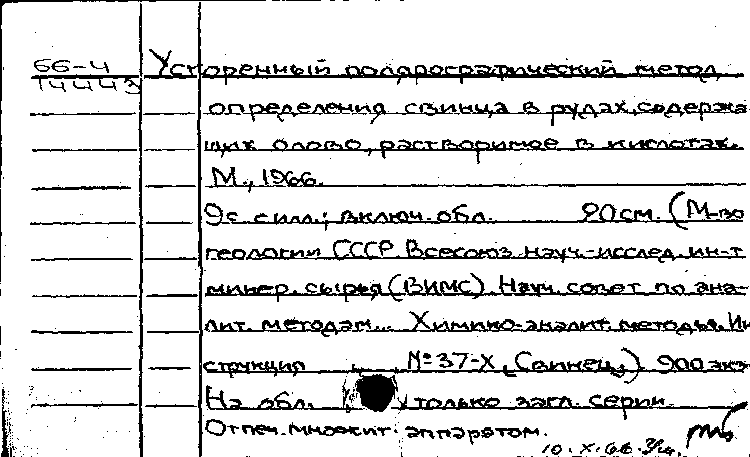 66-4 Ускоренный полярографический метод
14443
определения свинца в рудах, содержа
щих олово, растворимое в кислотах.
М., 1966.
9с. с илл.; включ. обл. 20см. (М-во
геологии СССР. Всесоюз. науч.-исслед. ин-т
минер. сырья (ВИМС). Науч. совет по ана-
лит. методам... Химико-аналит. методы. Ин
струкция №37-Х, (Свинец,). 900 экз
На обл. только загл. серии.
Отпеч. множит. аппаратом.
10.X.66